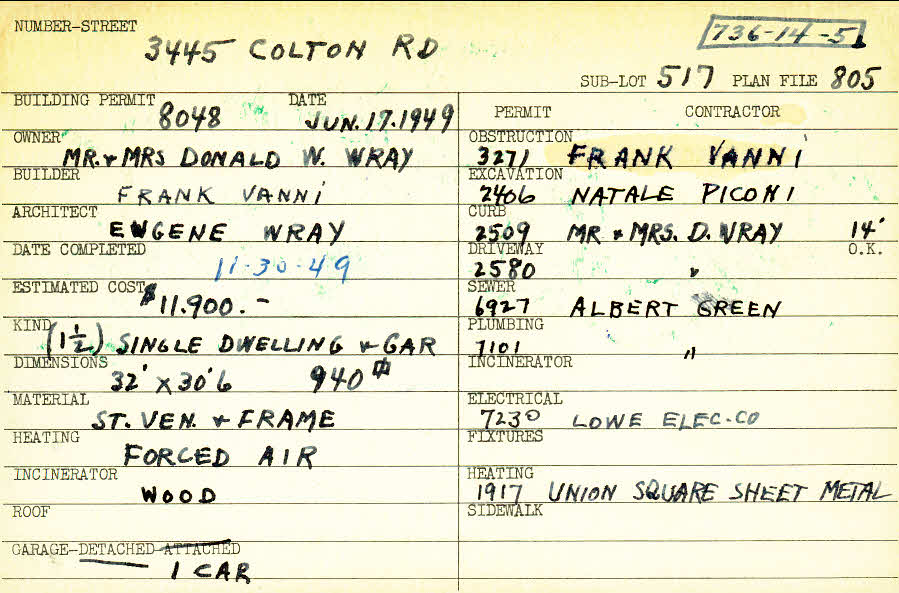 NUMBER-STREET
3445 COLTON RD
736-14-51
SUB-LOT 517 PLAN FILE 805
BUILDING PERMIT 8048 DATE JUN.17.1949
OWNER
MR. & MRS DONALD W. WRAY
BUILDER
FRANK VANNI
ARCHITECT
EUGENE WRAY
DATE COMPLETED
11-30-49
ESTIMATED COST $11.900.-
KIND
(1½) SINGLE DWELLING & GAR
DIMENSIONS
32' X 30'6 940
MATERIAL
ST. VEN. & FRAME
HEATING
FORCED AIR
INCINERATOR
WOOD
ROOF
GARAGE-DETACHED-ATTACHED
1 CAR
PERMIT CONTRACTOR
OBSTRUCTION
3271 FRANK VANNI
EXCAVATION
2406 NATALE PICONI
CURB
2509 MR & MRS. D. WRAY 14'
DRIVEWAY O.K.
2580 "
SEWER
6927 ALBERT GREEN
PLUMBING
7101 "
INCINERATOR
ELECTRICAL
7230 LOWE ELEC-CO
FIXTURES
HEATING
1917 UNION SQUARE SHEET METAL
SIDEWALK